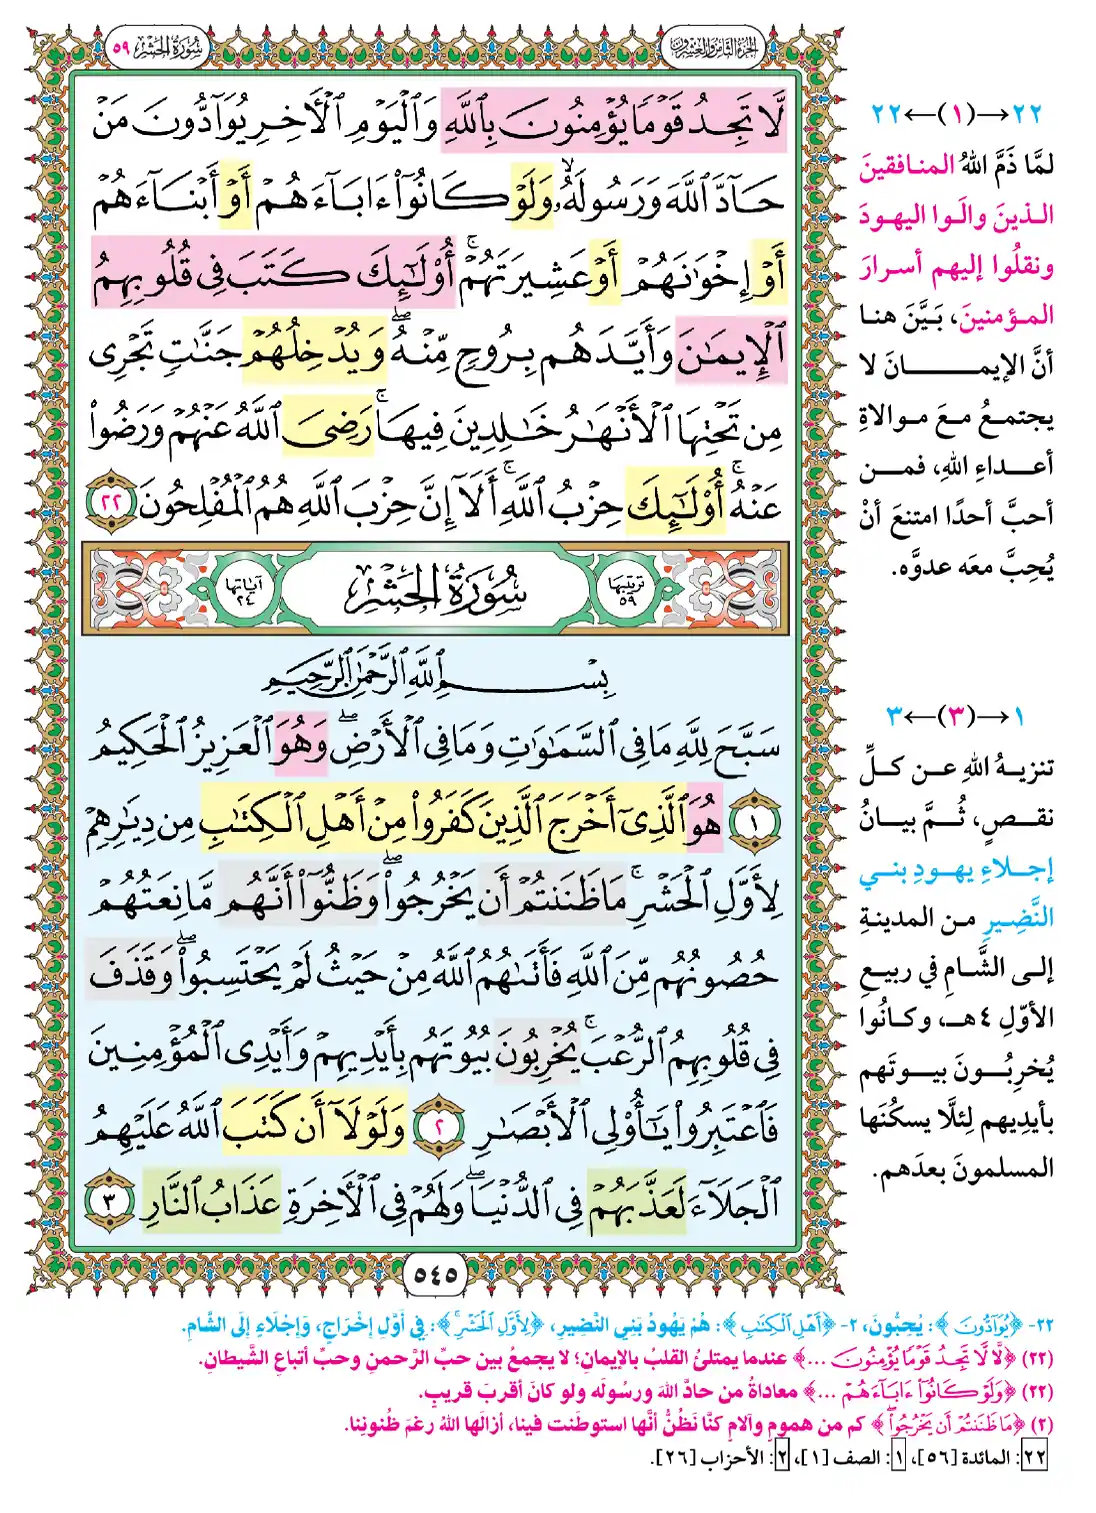 الجزء الثامن والعشرون
سورة الحشر ٥٩
لَّا تَجِدُ قَوْمًا يُؤْمِنُونَ بِٱللَّهِ وَٱلْيَوْمِ ٱلْأَخِرِ يُوَآدُّونَ مَنْ
حَآدَّ ٱللَّهَ وَرَسُولَهُۥ وَلَوْ كَانُوٓا۟ ءَابَآءَهُمْ أَوْ أَبْنَآءَهُمْ
أَوْ إِخْوَٰنَهُمْ أَوْ عَشِيرَتَهُمْ ۚ أُو۟لَٰٓئِكَ كَتَبَ فِى قُلُوبِهِمُ
ٱلْإِيمَٰنَ وَأَيَّدَهُم بِرُوحٍ مِّنْهُ ۖ وَيُدْخِلُهُمْ جَنَّٰتٍ تَجْرِى
مِن تَحْتِهَا ٱلْأَنْهَٰرُ خَٰلِدِينَ فِيهَا ۚ رَضِىَ ٱللَّهُ عَنْهُمْ وَرَضُوا۟
عَنْهُ ۚ أُو۟لَٰٓئِكَ حِزْبُ ٱللَّهِ ۚ أَلَآ إِنَّ حِزْبَ ٱللَّهِ هُمُ ٱلْمُفْلِحُونَ ٢٢
ترتيبها ٥٩
سورة الحشر
آياتها ٢٤
بِسْمِ ٱللَّهِ ٱلرَّحْمَٰنِ ٱلرَّحِيمِ
سَبَّحَ لِلَّهِ مَا فِى ٱلسَّمَٰوَٰتِ وَمَا فِى ٱلْأَرْضِ ۖ وَهُوَ ٱلْعَزِيزُ ٱلْحَكِيمُ
١ هُوَ ٱلَّذِىٓ أَخْرَجَ ٱلَّذِينَ كَفَرُوا۟ مِنْ أَهْلِ ٱلْكِتَٰبِ مِن دِيَٰرِهِمْ
لِأَوَّلِ ٱلْحَشْرِ ۚ مَا ظَنَنتُمْ أَن يَخْرُجُوا۟ ۖ وَظَنُّوٓا۟ أَنَّهُم مَّانِعَتُهُمْ
حُصُونُهُم مِّنَ ٱللَّهِ فَأَتَىٰهُمُ ٱللَّهُ مِنْ حَيْثُ لَمْ يَحْتَسِبُوا۟ ۖ وَقَذَفَ
فِى قُلُوبِهِمُ ٱلرُّعْبَ ۚ يُخْرِبُونَ بُيُوتَهُم بِأَيْدِيهِمْ وَأَيْدِى ٱلْمُؤْمِنِينَ
فَٱعْتَبِرُوا۟ يَٰٓأُو۟لِى ٱلْأَبْصَٰرِ ٢ وَلَوْلَآ أَن كَتَبَ ٱللَّهُ عَلَيْهِمُ
ٱلْجَلَآءَ لَعَذَّبَهُمْ فِى ٱلدُّنْيَا ۖ وَلَهُمْ فِى ٱلْأَخِرَةِ عَذَابُ ٱلنَّارِ ٣
٥٤٥
٢٢→(١)←٢٢
لمَّا ذَمَّ اللهُ المنافقينَ
الذينَ والَوا اليهودَ
ونقلُوا إليهم أسرارَ
المؤمنينَ، بَيَّنَ هنا
أنَّ الإيمانَ لا
يجتمعُ معَ موالاةِ
أعداءِ اللهِ، فمن
أحبَّ أحدًا امتنعَ أنْ
يُحِبَّ معَه عدوَّه.
١→(٣)←٣
تنزيهُ اللهِ عن كلِّ
نقصٍ، ثُمَّ بيانُ
إجلاءِ يهودِ بني
النَّضِيرِ من المدينةِ
إلى الشَّامِ في ربيعِ
الأوّلِ ٤هـ، وكانُوا
يُخرِبُونَ بيوتَهم
بأيدِيهم لِئلَّا يسكُنَها
المسلمونَ بعدَهم.
٢٢- ﴿يُوَآدُّونَ﴾: يُحِبُّونَ، ٢- ﴿أَهْلِ ٱلْكِتَٰبِ﴾: هُمْ يَهُودُ بَنِي النَّضِيرِ، ﴿لِأَوَّلِ ٱلْحَشْرِ ۚ﴾: فِي أَوَّلِ إِخْرَاجٍ، وَإِجْلَاءٍ إِلَى الشَّامِ.
(٢٢) ﴿لَّا تَجِدُ قَوْمًا يُؤْمِنُونَ ...﴾ عندما يمتلئُ القلبُ بالإيمانِ؛ لا يجمعُ بين حبِّ الرَّحمنِ وحبِّ أتباعِ الشَّيطانِ.
(٢٢) ﴿وَلَوْ كَانُوٓا۟ ءَابَآءَهُمْ ...﴾ معاداةُ من حادَّ اللهَ ورسُولَه ولو كانَ أقربَ قريبٍ.
(٢) ﴿مَا ظَنَنتُمْ أَن يَخْرُجُوا۟ ۖ﴾ كم من همومٍ وآلامٍ كنَّا نَظُنُّ أنَّها استوطَنت فينا، أزالَها اللهُ رغمَ ظُنونِنا.
٢٢: المائدة [٥٦]، ١: الصف [١]، ٢: الأحزاب [٢٦].